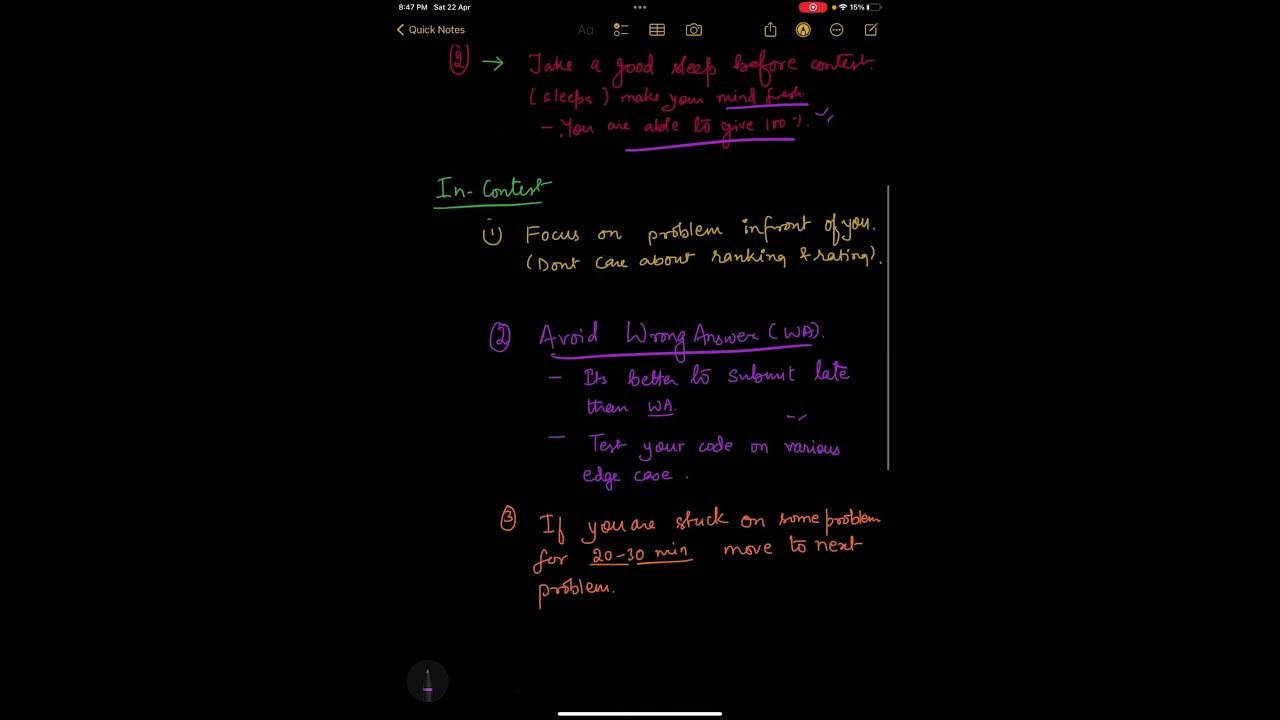 8:47 PM Sat 22 Apr
15%
Quick Notes
Aa
② → Take a good sleep before contest.
(sleeps) make your mind fresh
- You are able to give 100%.
In-Contest
① Focus on problem infront of you.
(Dont care about ranking & rating).
② Avoid Wrong Answer (WA).
- Its better to submit late
than WA.
- Test your code on various
edge case.
③ If you are stuck on some problem
for 20-30 min move to next
problem.